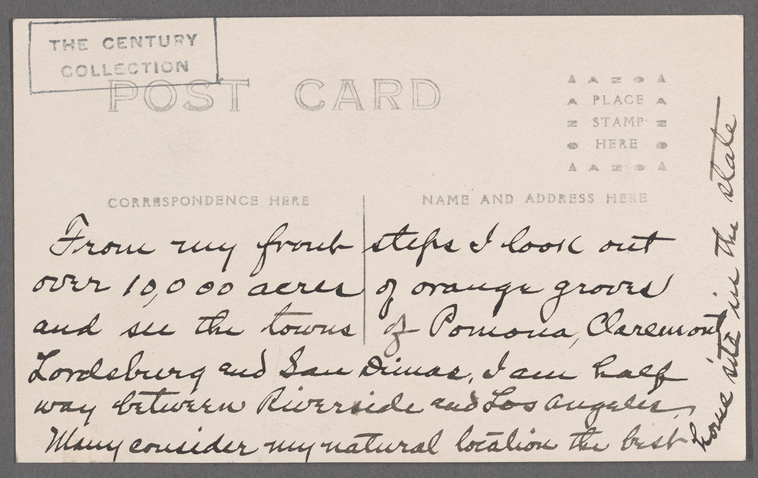 THE CENTURY
COLLECTION
POST CARD
AZO
PLACE
STAMP
HERE
AZO
CORRESPONDENCE HERE
NAME AND ADDRESS HERE
From my front steps I look out
over 10,000 acres of orange groves
and see the towns of Pomona, Claremont
Lordsburg and San Dimas. I am half
way between Riverside and Los Angeles.
Many consider my natural location the best
home site in the state